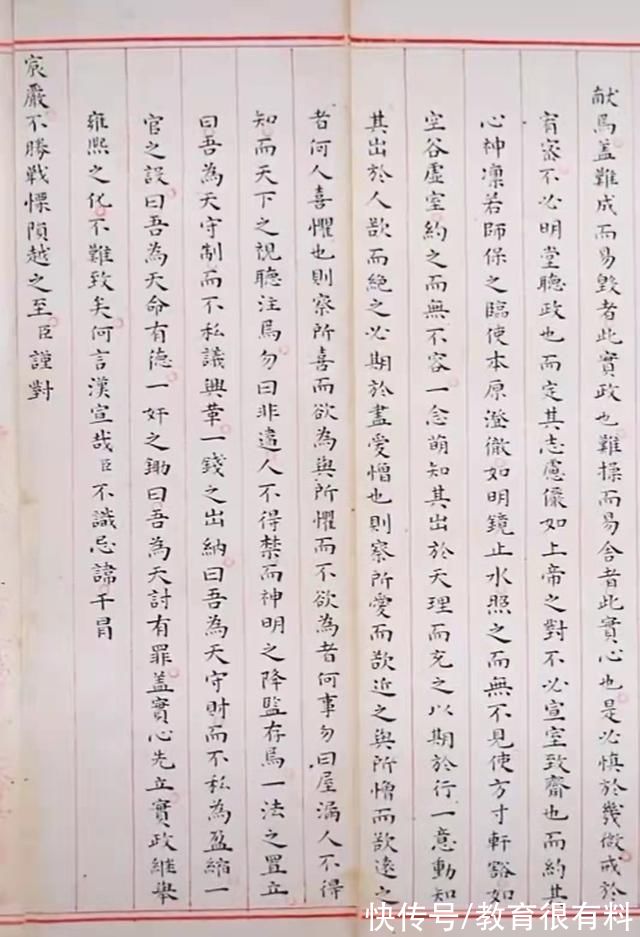 献焉盖難成而易毀者此實政也難操而易舍者此實心也是必慎於幾微戒於
宥密不必明堂聽政也而定其志慮儼如上帝之對不必宣室致齋也而約其
心神凜若師保之臨使本原澄徹如明鏡止水照之而無不見使方寸軒豁如
空谷虛室約之而無不容一念萌知其出於天理而充之以期於行一意動知
其出於人欲而絕之必期於盡愛憎也則察所愛而欲近之與所憎而欲遠之
者何人喜懼也則察所喜而欲為與所懼而不欲為者何事勿曰屋漏人不得
知而天下之視聽注焉勿曰非違人不得禁而神明之降監存焉一法之置立
曰吾為天守制而不私議興革一錢之出納曰吾為天守財而不私為盈縮一
官之設曰吾為天命有德一奸之鋤曰吾為天討有罪蓋實心先立實政繼舉
雍熙之化不難致矣何言漢宣哉臣不識忌諱干冒
宸嚴不勝戰慄隕越之至臣謹對
快传号/教育很有料